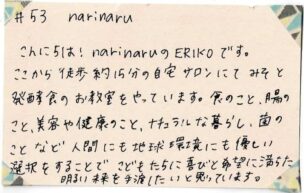 #53 narinaru
こんにちは! narinaruのERIKOです。
ここから徒歩約15分の自宅サロンにて みそと
発酵食のお教室をやっています。食のこと、腸の
こと、美容や健康のこと、ナチュラルな暮らし、菌の
ことなど 人間にも地球環境にも優しい
選択をすることで こどもたちに喜びと希望に満ちた
明るい未来を手渡したいと思っています。